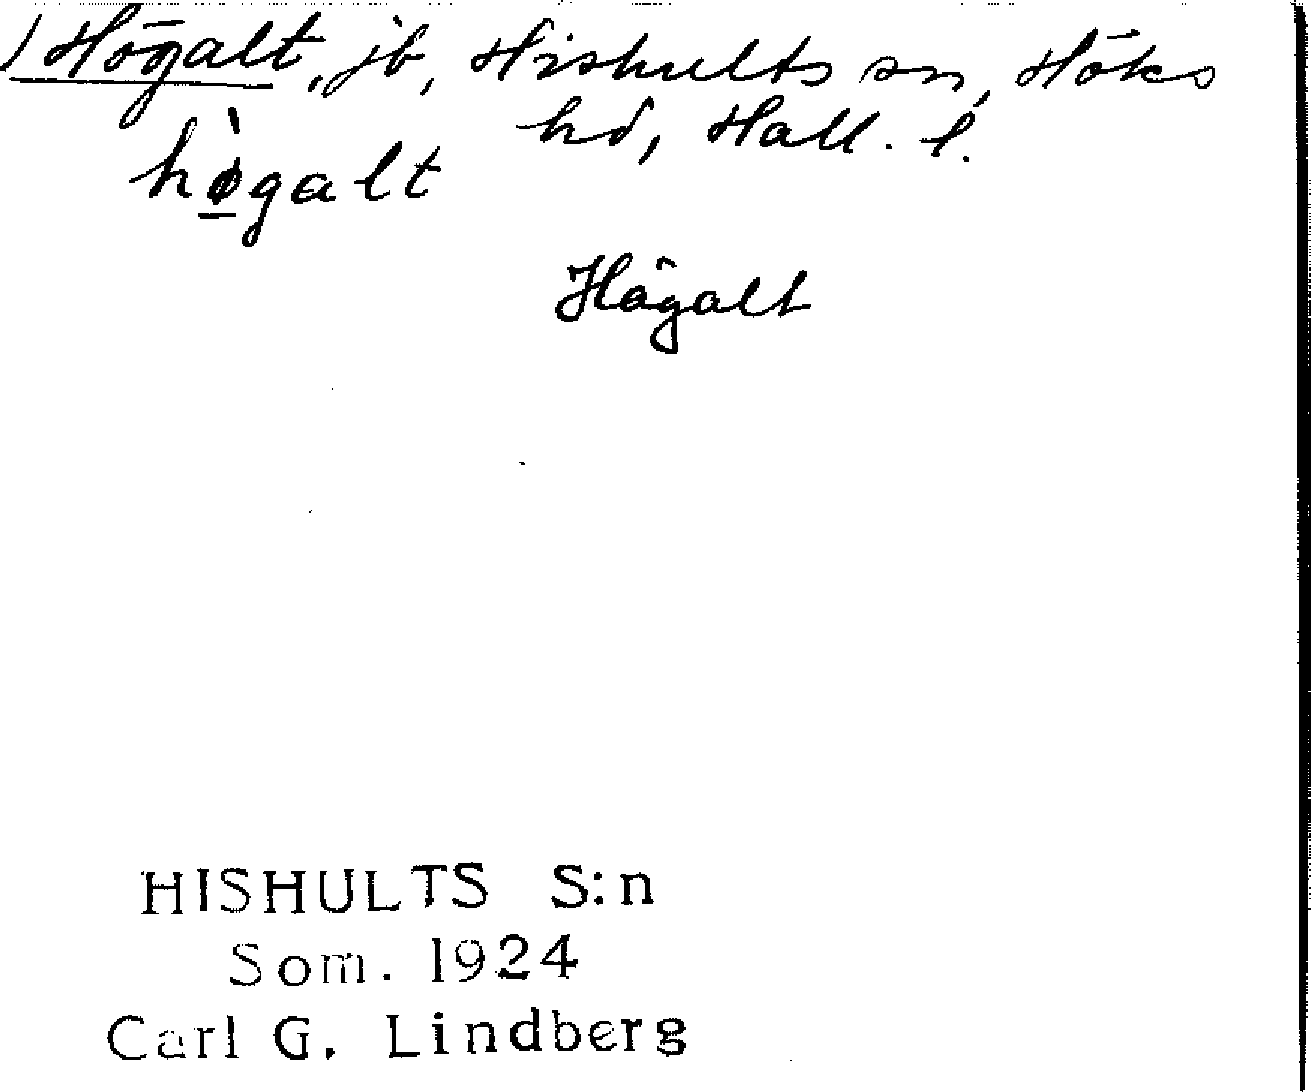 / Högalt, jb, Hishults sn, Höks
hd, Hall. l.
hø̀galt
Högalt
HISHULTS S:n
Som. 1924
Carl G. Lindberg